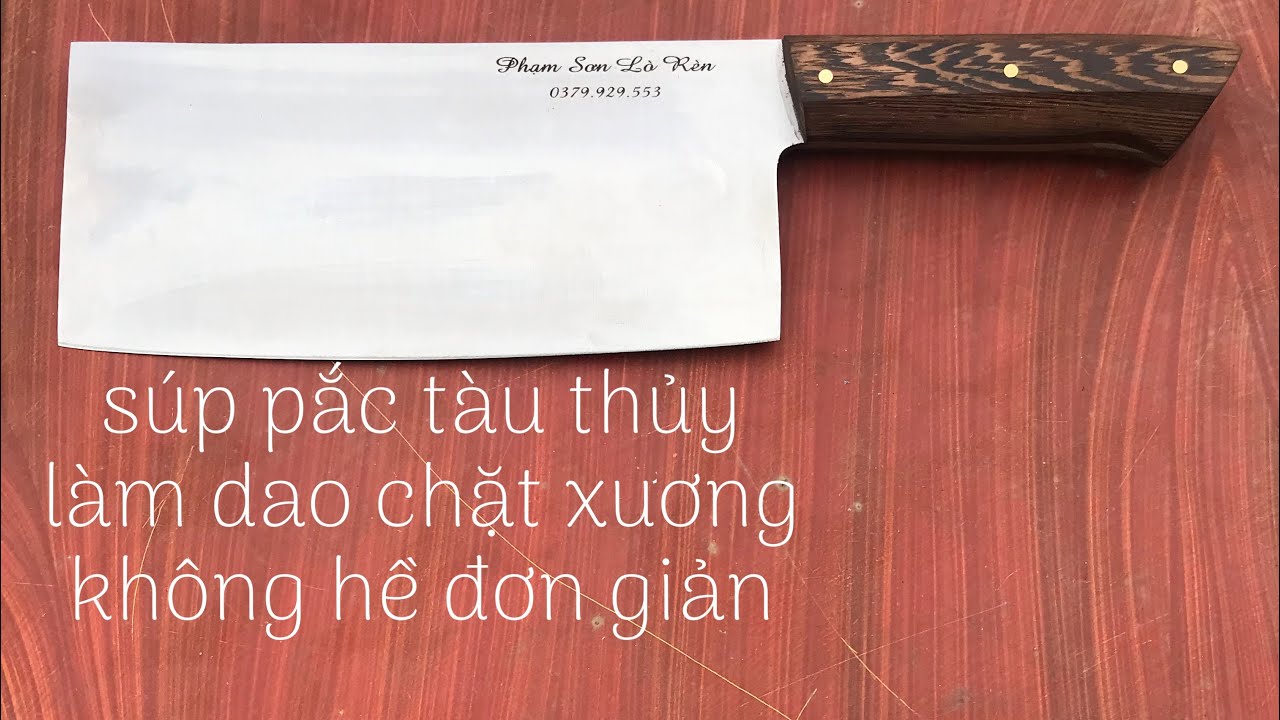 Phạm Sơn Lò Rèn
0379.929.553
súp pắc tàu thủy
làm dao chặt xương
không hề đơn giản